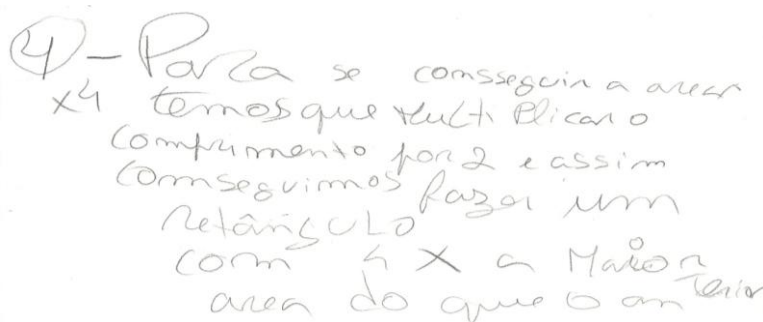 4 - Para se comsseguir a arear
x4 temos que Multi Plicar o
comprimento por 2 e assim
comseguimos fazer um
retângULO
com 4 X a Maior
area do que o anterior